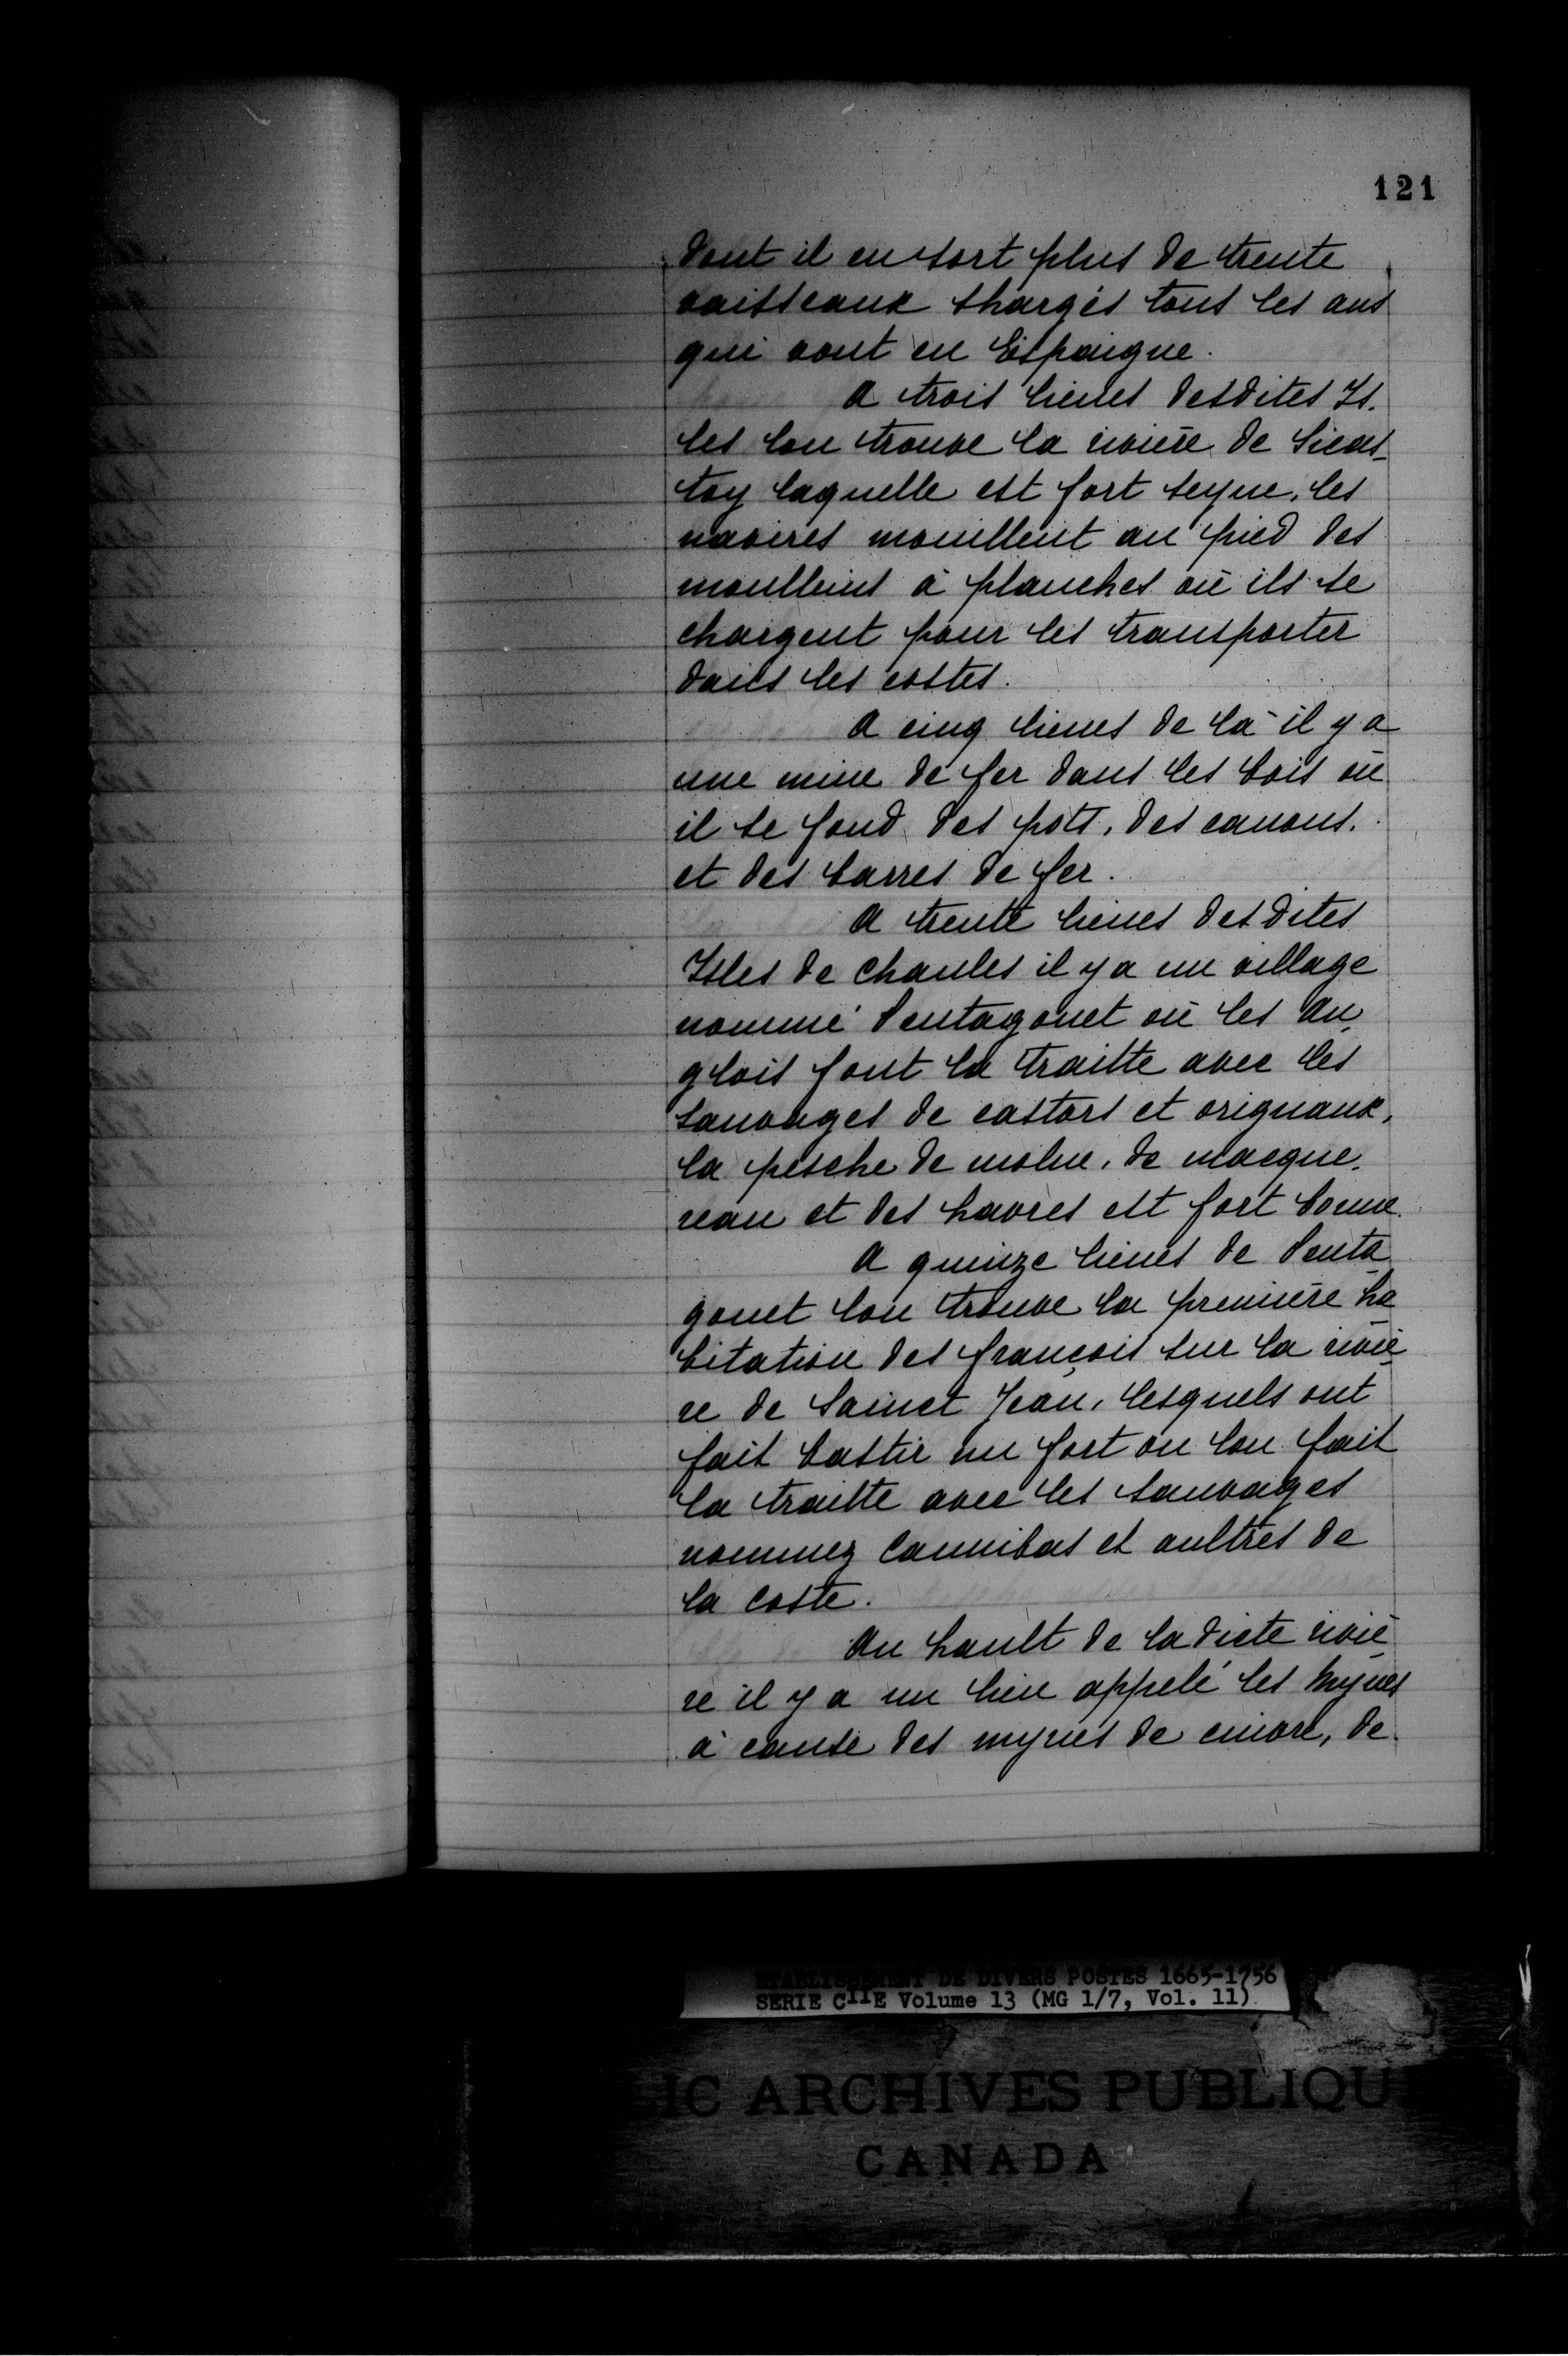 121
dont il en sort plus de trente
vaisseaux chargés tous les ans
qui vont en Espaigne.
A trois lieues desdites Is-
les lon trouve la rivière de Sicas-
toy laquelle est fort seyne, les
navires mouillent au pied des
moullins à planches où ils se
chargent pour les transporter
dans les costes.
A cinq lieues de là il y a
une mine de fer dans les bois où
il se fond des pots, des canons,
et des barres de fer.
A trente lieues desdites
Isles de Chaules il y a un village
nommé Pentagouet où les An-
glois font la traitte avec les
sauvages de castors et orignaux,
la pesche de molue, de macque-
reau et des havres est fort bonne.
A quinze lieues de Penta-
gouet lon trouve la première ha-
bitation des françois sur la riviè-
re de Sainct Jean, lesquels ont
fait bastir un fort ou lon fait
la traitte avec les sauvages
nommez Cannibas et aultres de
la coste.
Au hault de la dicte riviè-
re il y a un lieu appelé les Mynes
à cause des mynes de cuivre, de
ETABLISSEMENT DE DIVERS POSTES 1665-1756
SERIE C11E Volume 13 (MG 1/7, Vol. 11)
LIC ARCHIVES PUBLIQU
CANADA